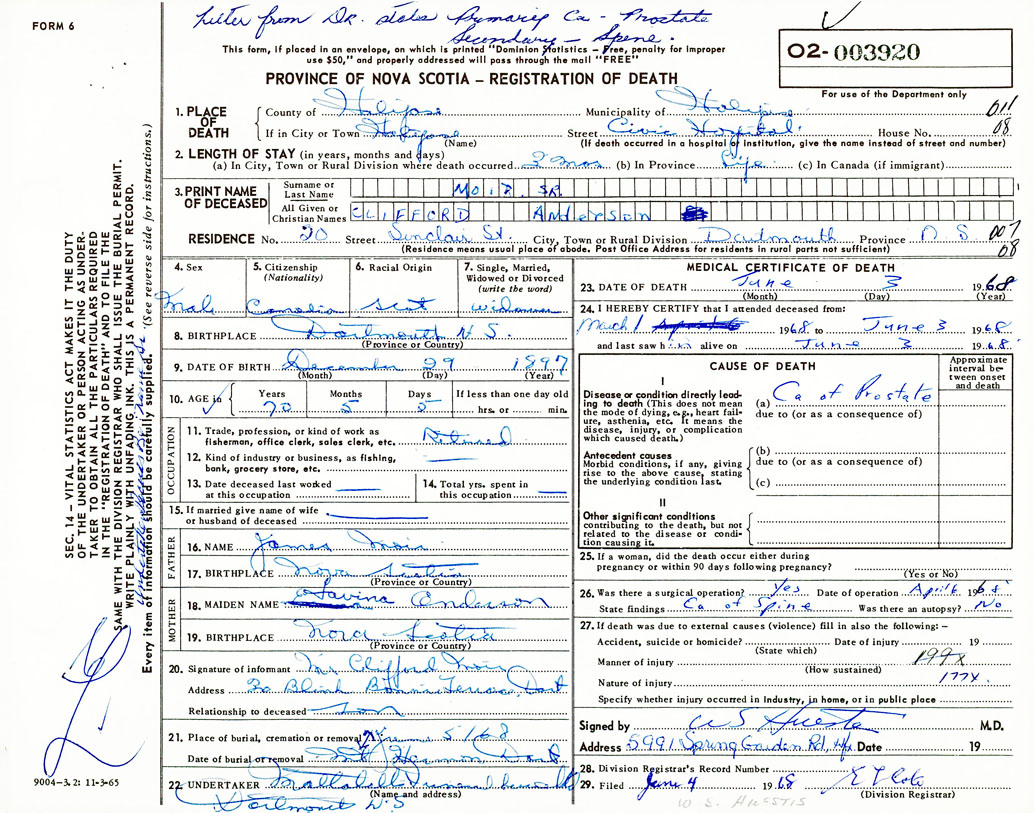 FORM 6
Letter from Dr. states Primary Ca - Prostate
Secondary - Spine.
This form, if placed in an envelope, on which is printed "Dominion Statistics – Free, penalty for improper
use $50," and properly addressed will pass through the mail "FREE"
O2-003920
For use of the Department only
PROVINCE OF NOVA SCOTIA – REGISTRATION OF DEATH
1. PLACE OF DEATH
County of Halifax Municipality of Halifax 011
If in City or Town Halifax Street Civic Hospital House No. 08
(Name) (If death occurred in a hospital or institution, give the name instead of street and number)
2. LENGTH OF STAY (in years, months and days)
(a) In City, Town or Rural Division where death occurred 3 mos (b) In Province Life (c) In Canada (if immigrant)
3. PRINT NAME OF DECEASED
Surname or Last Name MOIR SR.
All Given or Christian Names CLIFFORD Anderson
RESIDENCE No. 20 Street Sinclair St. City, Town or Rural Division Dartmouth Province N S 007
08
(Residence means usual place of abode. Post Office Address for residents in rural parts not sufficient)
4. Sex Male
5. Citizenship (Nationality) Canadian
6. Racial Origin Scot
7. Single, Married, Widowed or Divorced (write the word) widower
8. BIRTHPLACE Dartmouth N.S.
(Province or Country)
9. DATE OF BIRTH December 29 1897
(Month) (Day) (Year)
10. AGE in Years 70 Months 5 Days 5 If less than one day old hrs. or min.
OCCUPATION
11. Trade, profession, or kind of work as fisherman, office clerk, sales clerk, etc. Retired
12. Kind of industry or business, as fishing, bank, grocery store, etc.
13. Date deceased last worked at this occupation
14. Total yrs. spent in this occupation
15. If married give name of wife or husband of deceased
FATHER
16. NAME James Moir
17. BIRTHPLACE Nova Scotia
(Province or Country)
MOTHER
18. MAIDEN NAME Lavina Anderson
19. BIRTHPLACE Nova Scotia
(Province or Country)
20. Signature of informant Mr Clifford Moir
Address 30 Blink Bonnie Terrace, Dart
Relationship to deceased Son
21. Place of burial, cremation or removal June 5/68
Date of burial or removal Mt Hermon Dart
22. UNDERTAKER Mattatall Funeral
(Name and address)
Dartmouth N.S
MEDICAL CERTIFICATE OF DEATH
23. DATE OF DEATH June 3 1968
(Month) (Day) (Year)
24. I HEREBY CERTIFY that I attended deceased from:
March 1 1968 to June 3 1968
and last saw him alive on June 3 1968.
CAUSE OF DEATH
Approximate interval between onset and death
I
Disease or condition directly leading to death (This does not mean the mode of dying, e.g., heart failure, asthenia, etc. It means the disease, injury, or complication which caused death.)
(a) Ca of Prostate
due to (or as a consequence of)
Antecedent causes
Morbid conditions, if any, giving rise to the above cause, stating the underlying condition last.
(b)
due to (or as a consequence of)
(c)
II
Other significant conditions
contributing to the death, but not related to the disease or condition causing it.
25. If a woman, did the death occur either during
pregnancy or within 90 days following pregnancy?
(Yes or No)
26. Was there a surgical operation? Yes Date of operation April 6 1968
State findings Ca of Spine Was there an autopsy? No
27. If death was due to external causes (violence) fill in also the following: –
Accident, suicide or homicide? Date of injury 19
(State which)
Manner of injury 199X
(How sustained)
Nature of injury 177X.
Specify whether injury occurred in industry, in home, or in public place
Signed by W S Huestis M.D.
Address 5991 Spring Garden Rd, Hfx. Date 19
28. Division Registrar's Record Number
29. Filed June 4 1968
(Division Registrar)
W S. HUESTIS
SEC. 14 – VITAL STATISTICS ACT MAKES IT THE DUTY
OF THE UNDERTAKER OR PERSON ACTING AS UNDER-
TAKER TO OBTAIN ALL THE PARTICULARS REQUIRED
IN THE "REGISTRATION OF DEATH" AND TO FILE THE
SAME WITH THE DIVISION REGISTRAR WHO SHALL ISSUE THE BURIAL PERMIT.
WRITE PLAINLY WITH UNFADING INK. THIS IS A PERMANENT RECORD.
Every item of information should be carefully supplied. (See reverse side for instructions.)
9004–3.2: 11-3-65